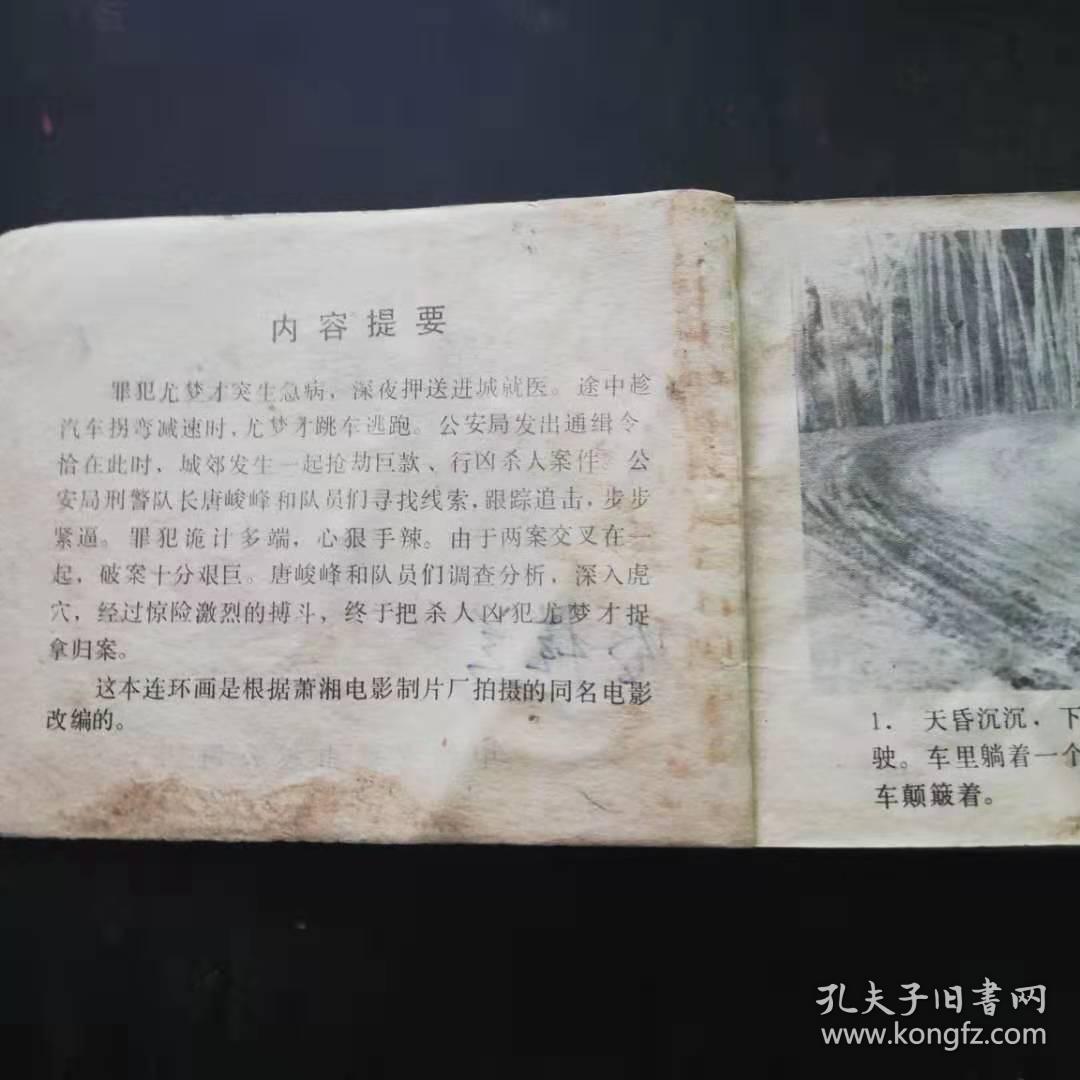 内容提要
罪犯尤梦才突生急病，深夜押送进城就医。途中趁
汽车拐弯减速时，尤梦才跳车逃跑。公安局发出通缉令。
恰在此时，城郊发生一起抢劫巨款、行凶杀人案件。公
安局刑警队长唐峻峰和队员们寻找线索，跟踪追击，步步
紧逼。罪犯诡计多端，心狠手辣。由于两案交叉在一
起，破案十分艰巨。唐峻峰和队员们调查分析，深入虎
穴，经过惊险激烈的搏斗，终于把杀人凶犯尤梦才捉
拿归案。
这本连环画是根据萧湘电影制片厂拍摄的同名电影
改编的。
1．天昏沉沉，下
驶。车里躺着一个
车颠簸着。
孔夫子旧书网
www.kongfz.com